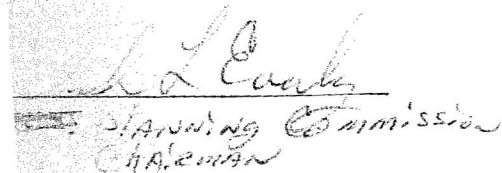 L
PLANNING COMMISSION
CHAIRMAN